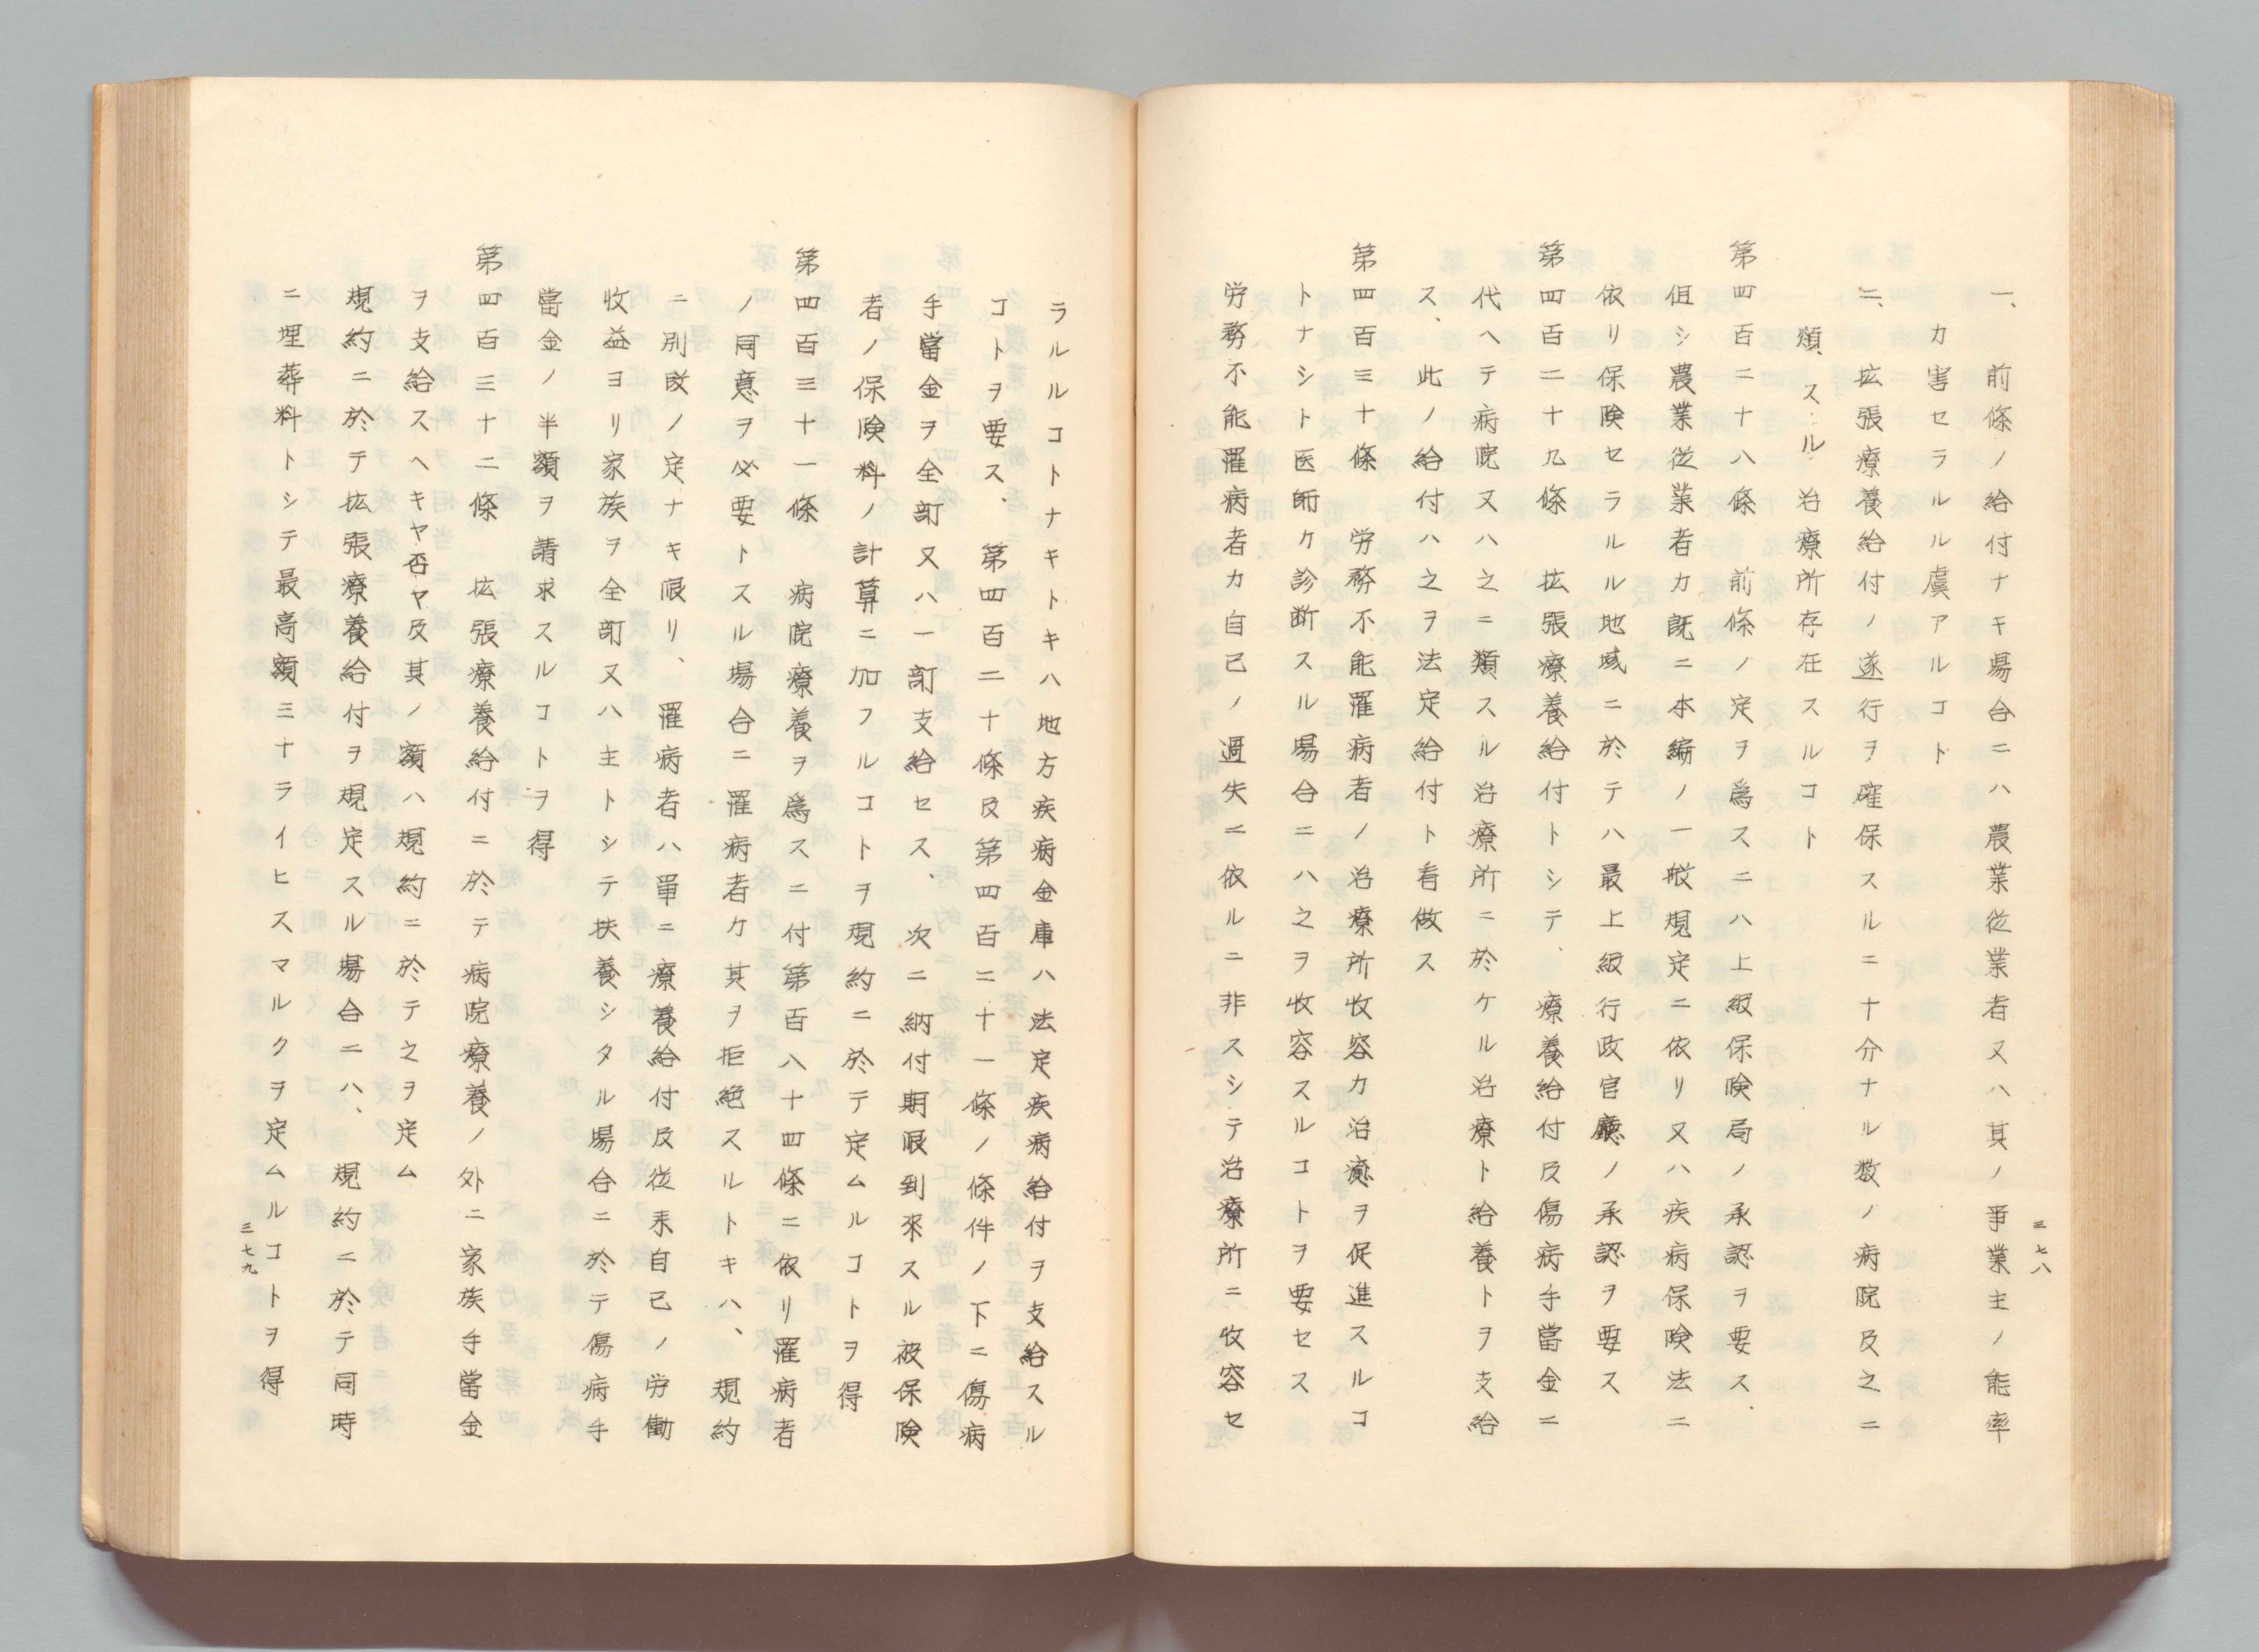 三七八
一、前條ノ給付ナキ場合ニハ農業從業者又ハ其ノ事業主ノ能率
カ害セラルル虞アルコト
二、拡張療養給付ノ遂行ヲ確保スルニ十分ナル数ノ病院及之ニ
類スル治療所存在スルコト
第四百二十八條　前條ノ定ヲ爲スニハ上級保険局ノ承認ヲ要ス、
但シ農業從業者カ既ニ本編ノ一般規定ニ依リ又ハ疾病保険法ニ
依リ保険セラルル地域ニ於テハ最上級行政官廳ノ承認ヲ要ス
第四百二十九條　拡張療養給付トシテ、療養給付及傷病手當金ニ
代ヘテ病院又ハ之ニ類スル治療所ニ於ケル治療ト給養トヲ支給
ス、此ノ給付ハ之ヲ法定給付ト看做ス
第四百三十條　労務不能罹病者ノ治療所收容カ治癒ヲ促進スルコ
トナシト医師カ診断スル場合ニハ之ヲ收容スルコトヲ要セス
労務不能罹病者カ自己ノ過失ニ依ルニ非スシテ治療所ニ收容セ
ラルルコトナキトキハ地方疾病金庫ハ法定疾病給付ヲ支給スル
コトヲ要ス、第四百二十條及第四百二十一條ノ條件ノ下ニ傷病
手當金ヲ全部又ハ一部支給セス、次ニ納付期限到來スル被保険
者ノ保険料ノ計算ニ加フルコトヲ規約ニ於テ定ムルコトヲ得
第四百三十一條　病院療養ヲ爲スニ付第百八十四條ニ依リ罹病者
ノ同意ヲ必要トスル場合ニ罹病者カ其ヲ拒絶スルトキハ、規約
ニ別段ノ定ナキ限リ、罹病者ハ單ニ療養給付及從来自己ノ労働
收益ヨリ家族ヲ全部又ハ主トシテ扶養シタル場合ニ於テ傷病手
當金ノ半額ヲ請求スルコトヲ得
第四百三十二條　拡張療養給付ニ於テ病院療養ノ外ニ家族手當金
ヲ支給スヘキヤ否ヤ及其ノ額ハ規約ニ於テ之ヲ定ム
規約ニ於テ拡張療養給付ヲ規定スル場合ニハ、規約ニ於テ同時
ニ埋葬料トシテ最高額三十ライヒスマルクヲ定ムルコトヲ得
三七九